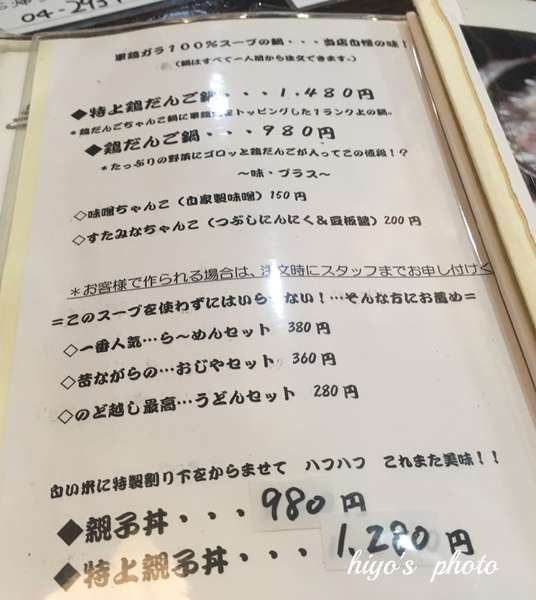 04-2951
軍鶏ガラ100%スープの鍋・・・当店自慢の味!
(鍋はすべて一人前から注文できます。)
◆特上鶏だんご鍋・・・1,480円
*鶏だんごちゃんこ鍋に軍鶏 トッピングした1ランク上の鍋。
◆鶏だんご鍋・・・980円
*たっぷりの野菜にゴロッと鶏だんごが入ってこの値段!?
~味・プラス~
◇味噌ちゃんこ(自家製味噌)150円
◇すたみなちゃんこ(つぶしにんにく&豆板醤)200円
*お客様で作られる場合は、注文時にスタッフまでお申し付けく
=このスープを使わずにはいら ない!…そんな方にお薦め=
◇一番人気…ら~めんセット 380円
◇昔ながらの…おじやセット 360円
◇のど越し最高…うどんセット 280円
白い米に特製割り下をからませて ハフハフ これまた美味!!
◆親子丼・・・980円
◆特上親子丼・・・1,280円
hiyo's photo